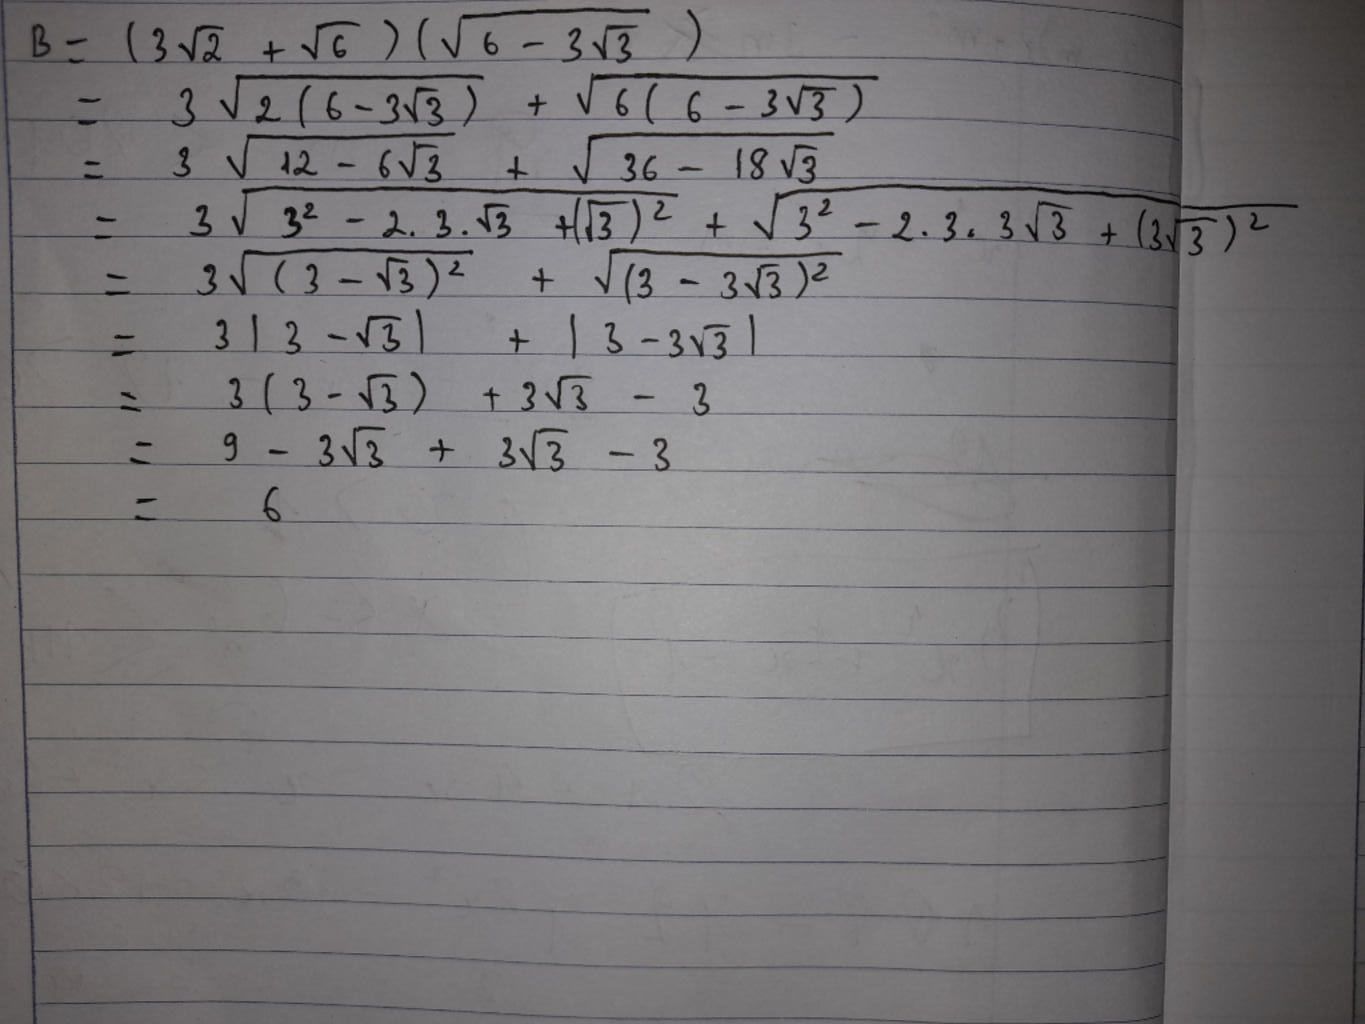 B = (3√2 + √6)(√(6 - 3√3))
= 3√(2(6 - 3√3)) + √(6(6 - 3√3))
= 3√(12 - 6√3) + √(36 - 18√3)
= 3√(3² - 2.3.√3 + (√3)²) + √(3² - 2.3.3√3 + (3√3)²)
= 3√((3 - √3)²) + √((3 - 3√3)²)
= 3|3 - √3| + |3 - 3√3|
= 3(3 - √3) + 3√3 - 3
= 9 - 3√3 + 3√3 - 3
= 6